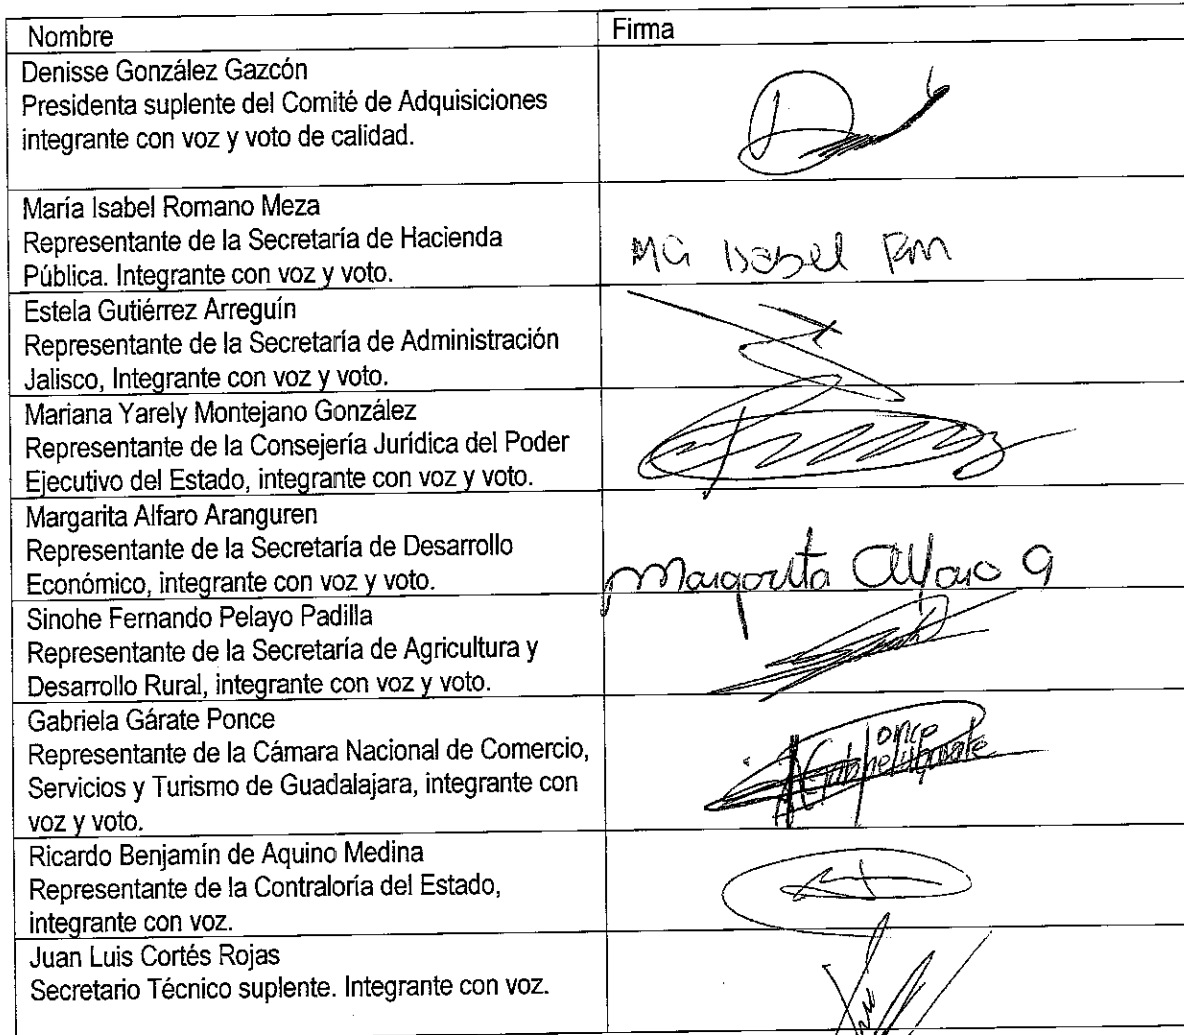 Nombre
Firma
Denisse González Gazcón
Presidenta suplente del Comité de Adquisiciones
integrante con voz y voto de calidad.
María Isabel Romano Meza
Representante de la Secretaría de Hacienda
Pública. Integrante con voz y voto.
Ma Isabel RM
Estela Gutiérrez Arreguín
Representante de la Secretaría de Administración
Jalisco, Integrante con voz y voto.
Mariana Yarely Montejano González
Representante de la Consejería Jurídica del Poder
Ejecutivo del Estado, integrante con voz y voto.
Margarita Alfaro Aranguren
Representante de la Secretaría de Desarrollo
Económico, integrante con voz y voto.
Margarita Alfaro A
Sinohe Fernando Pelayo Padilla
Representante de la Secretaría de Agricultura y
Desarrollo Rural, integrante con voz y voto.
Gabriela Gárate Ponce
Representante de la Cámara Nacional de Comercio,
Servicios y Turismo de Guadalajara, integrante con
voz y voto.
Ricardo Benjamín de Aquino Medina
Representante de la Contraloría del Estado,
integrante con voz.
Juan Luis Cortés Rojas
Secretario Técnico suplente. Integrante con voz.